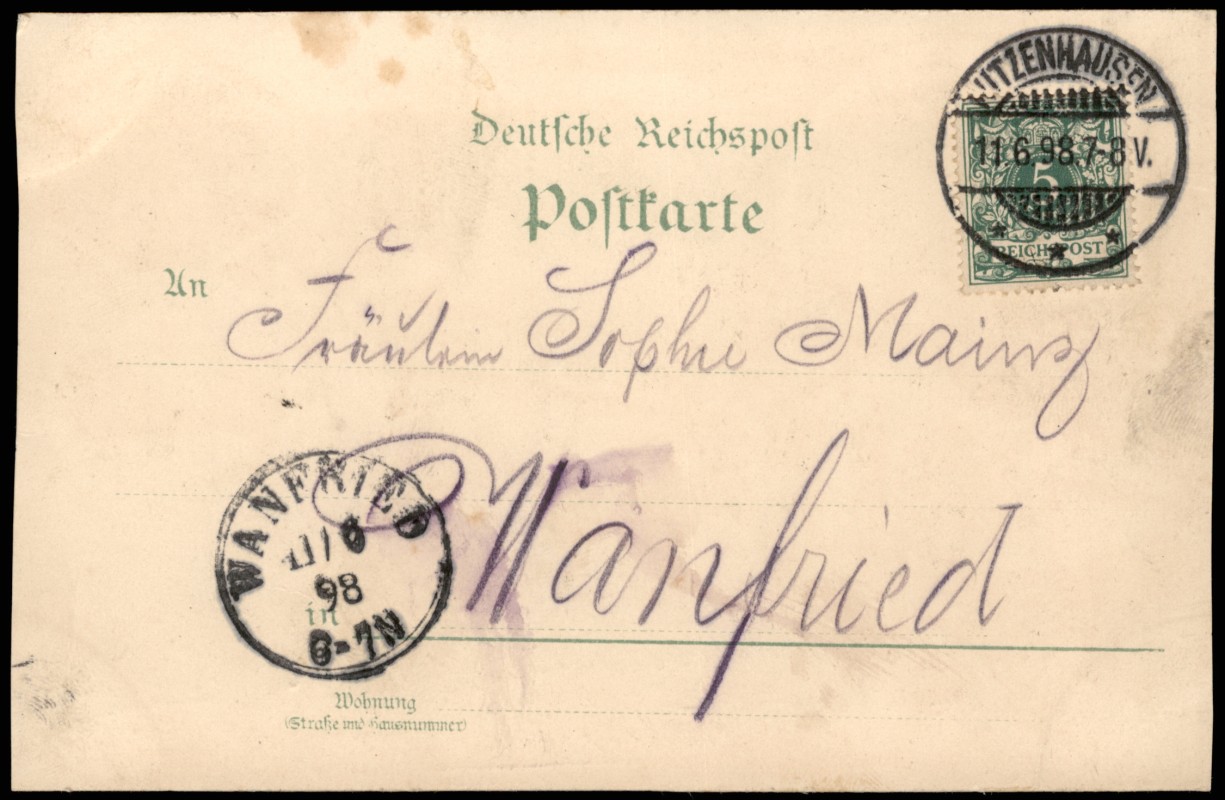 Deutsche Reichspost
Postkarte
WITZENHAUSEN
11 6.98 7-8 V.
5
REICHSPOST
An
Fräulein Sophie Mainz
WANFRIED
11/6
98
6-7N
Wanfried
in
Wohnung
(Straße und Hausnummer)